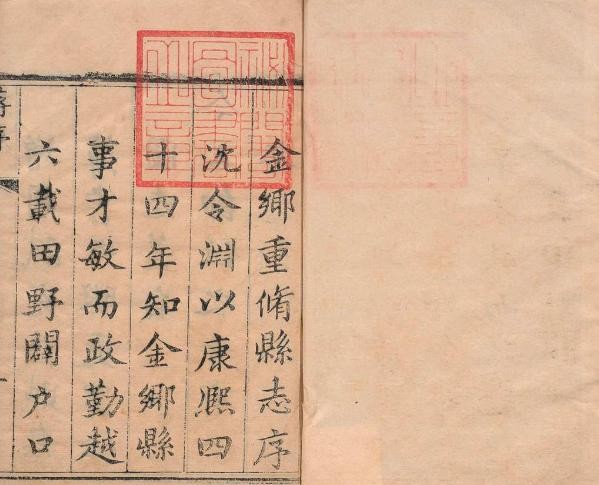 金鄉重脩縣志序
沈令淵以康熙四
十四年知金鄉縣
事才敏而政勤越
六載田野闢戶口